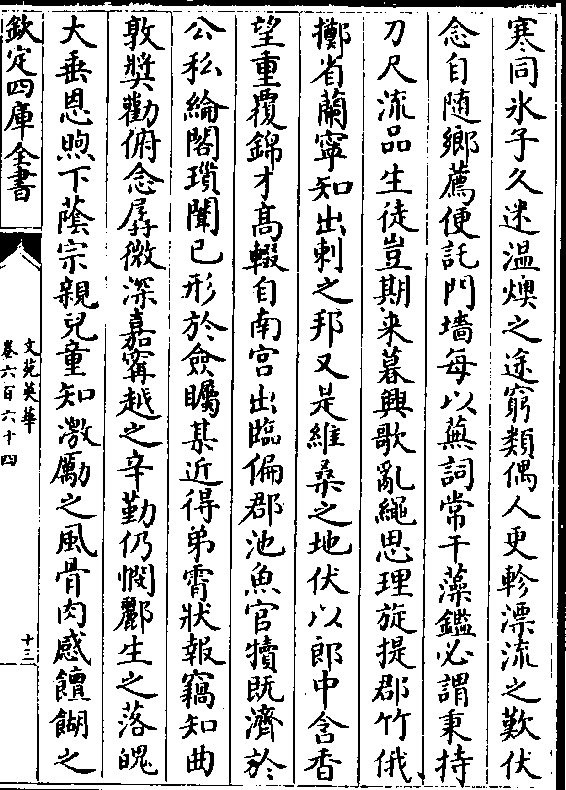 寒同氷子久迷温燠之途窮類偶人更軫漂流之歎伏
念自随鄉薦便託門墻每以蕪詞常干藻鑑必謂秉持
刀尺流品生徒豈期来暮興歌亂繩思理旋提郡竹俄
擲省蘭寧知出刺之邦又是維桑之地伏以郎中含香
望重覆錦才髙輟自南宫出臨偏郡池魚官犢既濟於
公私綸閣瑣闈已形於僉矚某近得弟霄狀報竊知曲
敦奬勸俯念孱微深嘉寗越之辛勤仍憫酈生之落魄
大垂恩煦下蔭宗親兒童知激勵之風骨肉感饘餬之
欽定四庫全書
文苑英華
卷六百六十四
十三